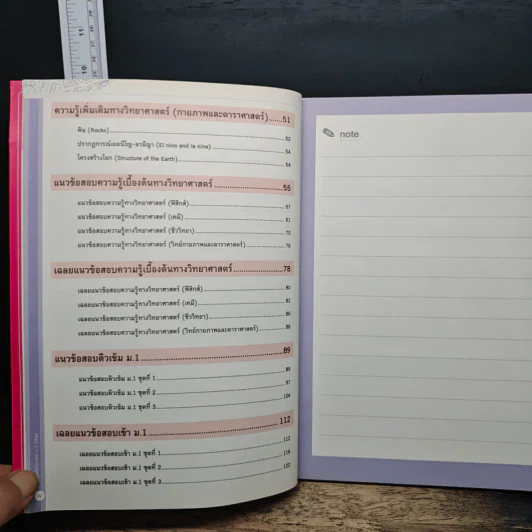 ความรู้เพิ่มเติมทางวิทยาศาสตร์ (กายภาพและดาราศาสตร์)......51
หิน (Rocks)..........52
ปรากฏการณ์เอลนีโญ-ลานีญา (El nino and la nina)..........54
โครงสร้างโลก (Structure of the Earth)..........54
แนวข้อสอบความรู้เบื้องต้นทางวิทยาศาสตร์..........55
แนวข้อสอบความรู้ทางวิทยาศาสตร์ (ฟิสิกส์)..........57
แนวข้อสอบความรู้ทางวิทยาศาสตร์ (เคมี)..........61
แนวข้อสอบความรู้ทางวิทยาศาสตร์ (ชีววิทยา)..........70
แนวข้อสอบความรู้ทางวิทยาศาสตร์ (วิทย์กายภาพและดาราศาสตร์)..........76
เฉลยแนวข้อสอบความรู้เบื้องต้นทางวิทยาศาสตร์..........78
เฉลยแนวข้อสอบความรู้ทางวิทยาศาสตร์ (ฟิสิกส์)..........80
เฉลยแนวข้อสอบความรู้ทางวิทยาศาสตร์ (เคมี)..........82
เฉลยแนวข้อสอบความรู้ทางวิทยาศาสตร์ (ชีววิทยา)..........86
เฉลยแนวข้อสอบความรู้ทางวิทยาศาสตร์ (วิทย์กายภาพและดาราศาสตร์)..........88
แนวข้อสอบติวเข้ม ม.1..........89
แนวข้อสอบติวเข้ม ม.1 ชุดที่ 1..........
แนวข้อสอบติวเข้ม ม.1 ชุดที่ 2..........97
แนวข้อสอบติวเข้ม ม.1 ชุดที่ 3..........104
เฉลยแนวข้อสอบเข้า ม.1..........112
เฉลยแนวข้อสอบเข้า ม.1 ชุดที่ 1..........112
เฉลยแนวข้อสอบเข้า ม.1 ชุดที่ 2..........118
เฉลยแนวข้อสอบเข้า ม.1 ชุดที่ 3..........122
note
11
10